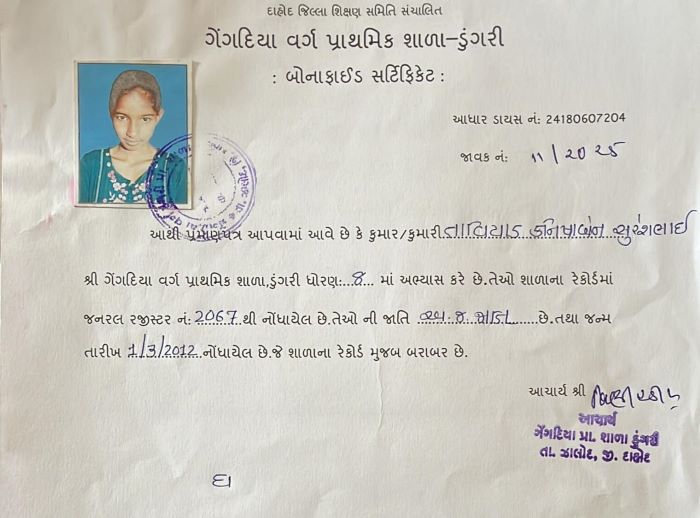 દાહોદ જિલ્લા શિક્ષણ સમિતિ સંચાલિત
ગેંગદિયા વર્ગ પ્રાથમિક શાળા-ડુંગરી
: બોનાફાઈડ સર્ટિફિકેટ :
આધાર ડાયસ નં: 24180607204
જાવક નં: ૧૧/૨૦૨૫
આથી પ્રમાણપત્ર આપવામાં આવે છે કે કુમાર/કુમારી તાવિયાડ સુરેશભાઈ
શ્રી ગેંગદિયા વર્ગ પ્રાથમિક શાળા,ડુંગરી ધોરણ:..8... માં અભ્યાસ કરે છે.તેઓ શાળાના રેકોર્ડમાં
જનરલ રજીસ્ટર નં: 2067 થી નોંધાયેલ છે.તેઓ ની જાતિ ........છે.તથા જન્મ
તારીખ 1/3/2012 નોંધાયેલ છે.જે શાળાના રેકોર્ડ મુજબ બરાબર છે.
આચાર્ય શ્રી
આચાર્ય
ગેંગદિયા પ્રા. શાળા ડુંગરી
તા. ઝાલોદ, જી. દાહોદ